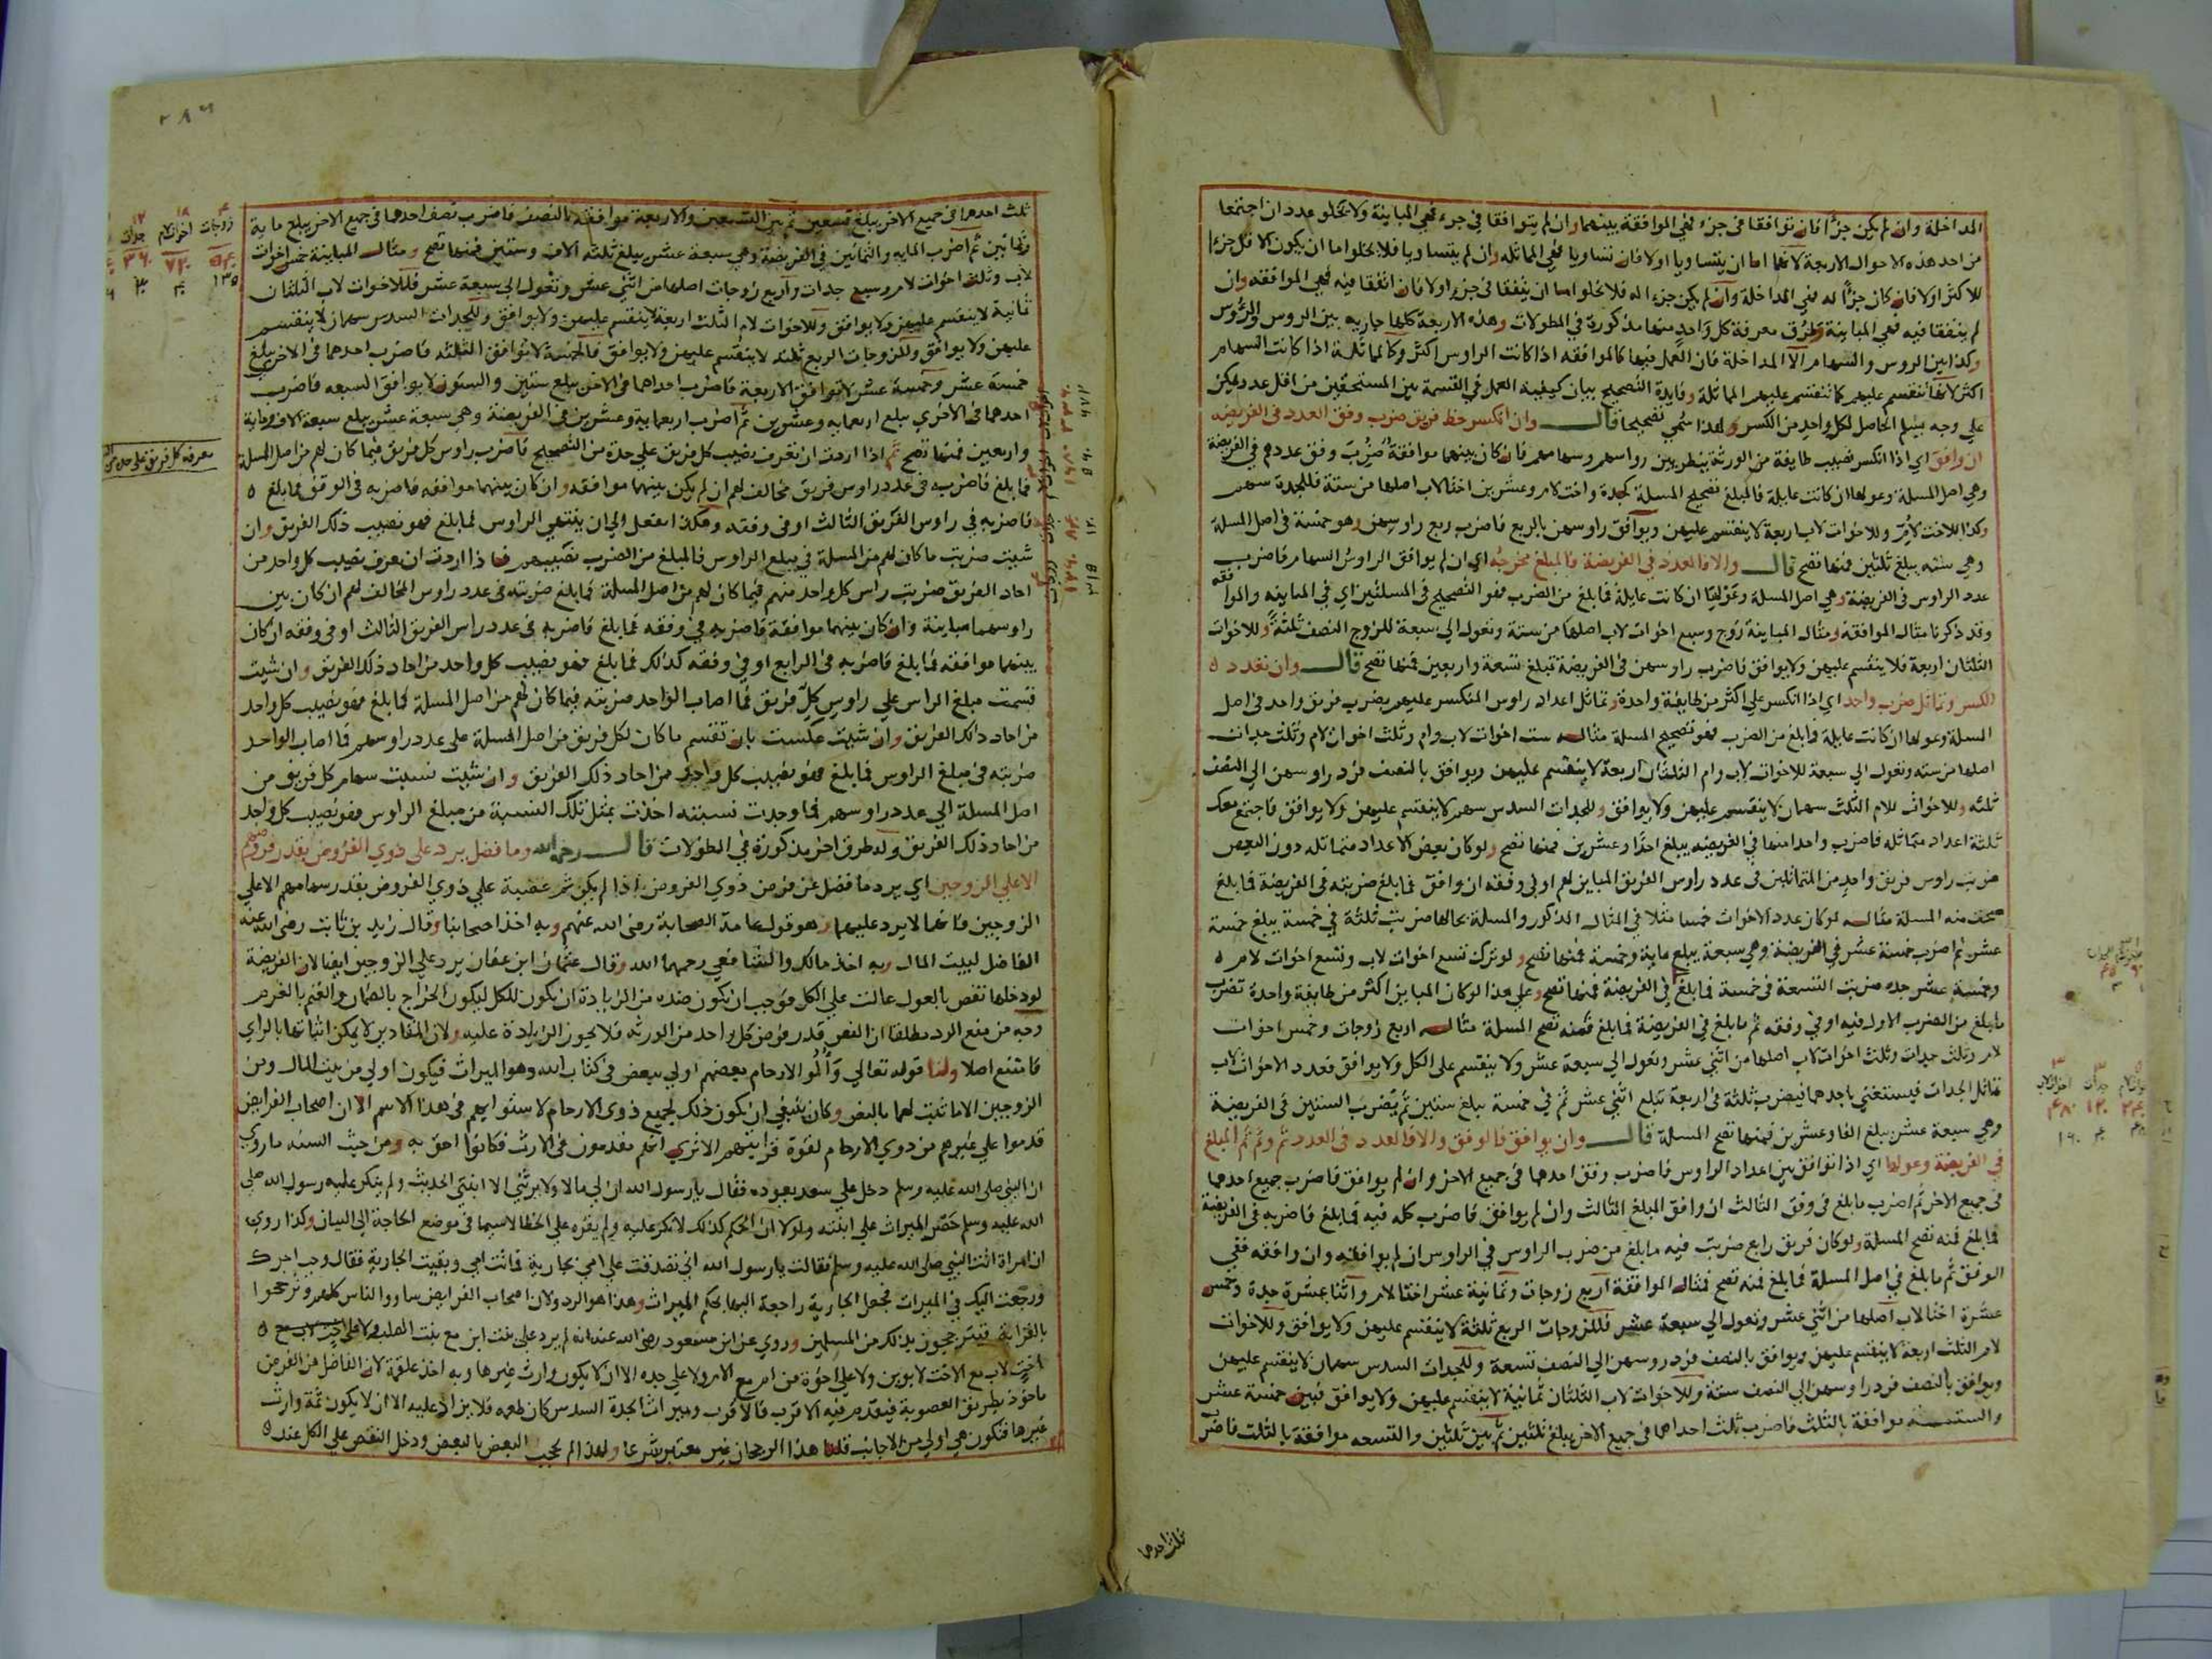 المداخلة وان لم يكن جزءًا فان توافقا فى جزء فهي الموافقة بينهما وان لم يتوافقا في جزء فهي المباينة ولا يخلو عددان اجتمعا
من احد هذه الاحوال الاربعة لانهما اما ان يتساويا او لا فان تساويا فهي المماثلة وان لم يتساويا فلا يخلوا اما ان يكون الاقل جزءا
للاكثر او لا فان كان جزءًا له فهي المداخلة وان لم يكن جزءا له فلا يخلوا اما ان يتفقا فى جزء او لا فان اتفقا فيه فهي الموافقه وان
لم يتفقا فيه فهي المباينة وطرق معرفة كل واحد منها مذكورة في المطولات وهذه الاربعة كلها جاريه بين الروس والرؤس
وكذا بين الروس والسهام الا المداخلة فان العمل فيها كالموافقه اذا كانت الراوس اكثر وكالمماثلة اذا كانت السهام
اكثر لانها تنقسم عليهم كما تنقسم عليهم المماثلة وفايدة التصحيح بيان كيفية العمل في القسمة بين المستحقين من اقل عدد يمكن
علي وجه يسلم الحاصل لكل واحد من الكسر ولهذا سمي تصحيحا قال وان انكسر حظ فريق ضرب وفق العدد في الفريضه
ان وافق اي اذا انكسر نصيب طايفة من الورثة ينظر بين رواسهم وسهامهم فان كان بينهما موافقة ضرب وفق عددهم في الفريضة
وهي اصل المسلة وعولها ان كانت عايلة فالمبلغ تصحيح المسلة كجدة واخت لام وعشرين اختا لاب اصلها من ستة فللجدة سهم
وكذا للاخت لام وللاخوات لاب اربعة لا ينقسم عليهن ويوافق راوسهن بالربع فاضرب ربع راوسهن وهو خمسة في اصل المسلة
وهي ستة يبلغ ثلثين فمنها تصح قال والا فالعدد في الفريضة فالمبلغ مخرجه اي ان لم يوافق الراوس السهام فاضرب
عدد الراوس فى الفريضة وهي اصل المسلة وعولها ان كانت عايلة فما بلغ من الضرب فهو التصحيح في المسلتين اي في المباينه والموافقه
وقد ذكرنا مثال الموافقه ومثال المباينة زوج وسبع اخوات لاب اصلها من ستة وتعول الي سبعة للزوج النصف ثلثة وللاخوات
الثلثان اربعة فلا ينقسم عليهن ولا يوافق فاضرب راوسهن فى الفريضة تبلغ تسعة واربعين فمنها تصح قال وان تعدد
الكسر وتماثل ضرب واحد اي اذا انكسر علي اكثر من طايفة واحدة وتماثل اعداد راوس المنكسر عليهم يضرب فريق واحد فى اصل
المسلة وعولها ان كانت عايلة فما بلغ من الضرب فهو تصحيح المسلة مثاله ست اخوات لاب وام وثلث اخوات لام وثلث جدات
اصلها من سته وتعول الي سبعة للاخوات لاب وام الثلثان اربعة لا ينقسم عليهن ويوافق بالنصف فرد راوسهن الي النصف
ثلثه وللاخوات للام الثلث سهمان لا ينقسم عليهن ولا يوافق وللجدات السدس سهم لا ينقسم عليهن ولا يوافق فاجتمع معك
ثلثة اعداد متماثله فاضرب واحدا منها في الفريضه يبلغ احدا وعشرين فمنها تصح ولو كان بعض الاعداد متماثله دون البعض
ضربت راوس فريق واحد من المتماثلين فى عدد راوس الفريق المباين لهم او في وفقه ان وافق فما بلغ ضربته في الفريضة فما بلغ
صحت منه المسلة مثاله لو كان عدد الاخوات خمسا مثلا في المثال المذكور والمسلة بحالها ضربت ثلثة في خمسة يبلغ خمسة
عشر ثم اضرب خمسة عشر في الفريضة وهي سبعة يبلغ ماية وخمسة فمنها تصح ولو ترك تسع اخوات لاب وتسع اخوات لام
وخمسة عشر جده ضربت التسعة فى خمسة فما بلغ في الفريضة فمنها تصح وعلي هذا لو كان المباين اكثر من طايفة واحدة تضرب
ما بلغ من الضرب الاول فيه او في وفقه ثم ما بلغ في الفريضة فما بلغ فمنه تصح المسلة مثاله اربع زوجات وخمس اخوات
لام وثلث جدات وثلث اخوات لاب اصلها من اثني عشر وتعول الي سبعة عشر ولا ينقسم على الكل ولا يوافق فعدد الاخوات لاب
تماثل الجدات فيستغني باحدهما فيضرب ثلثة فى اربعة تبلغ اثني عشر ثم في خمسة يبلغ ستين ثم يضرب الستين فى الفريضة
وهي سبعة عشر يبلغ الفا وعشرين فمنها تصح المسلة قال وان يوافق فالوفق والا فالعدد فى العدد ثم وثم ثم المبلغ
في الفريضة وعولها اي اذا توافق بين اعداد الراوس فاضرب وفق احدهما في جميع الاخر وان لم يوافق فاضرب جميع احدهما
في جميع الاخر ثم اضرب ما بلغ في وفق الثالث ان وافق المبلغ الثالث وان لم يوافق فاضرب كله فيه فما بلغ فاضربه في الفريضة
فما بلغ فمنه تصح المسلة ولو كان فريق رابع ضربت فيه ما بلغ من ضرب الراوس في الراوس ان لم يوافقه وان وافقه ففي
الوفق ثم ما بلغ في اصل المسلة فما بلغ فمنه تصح فمثال الموافقة اربع زوجات وثمانية عشر اختا لام واثنا عشرة جدة وخمس
عشرة اختا لاب اصلها من اثني عشر وتعول الي سبعة عشر فللزوجات الربع ثلثة لا ينقسم عليهن ولا يوافق وللاخوات
لام الثلث اربعة لا ينقسم عليهن ويوافق بالنصف فرد روسهن الي النصف تسعة وللجدات السدس سهمان لا ينقسم عليهن
ويوافق بالنصف فرد راوسهن الي النصف ستة وللاخوات لاب الثلثان ثمانية لا ينقسم عليهن ولا يوافق فبين خمسة عشر
والستة موافقة بالثلث فاضرب ثلث احداهما في جميع الاخر يبلغ ثلثين ثم بين ثلثين والتسعه موافقة بالثلث فاضرب
ثلث احدهما
ثلث احدهما في جميع الاخر يبلغ تسعين ثم بين التسعين والاربعة موافقه بالنصف فاضرب نصف احدهما في جميع الاخر يبلغ ماية
وثمانين ثم اضرب المايه والثمانين في الفريضة وهي سبعة عشر يبلغ ثلثة الاف وستين فمنها تصح ومثال المباينة خمس اخوات
لاب وثلث اخوات لام وسبع جدات واربع زوجات اصلها من اثني عشر وتعول الي سبعة عشر فللاخوات لاب الثلثان
ثمانية لا ينقسم عليهن ولا يوافق وللاخوات لام الثلث اربعة لا ينقسم عليهن ولا يوافق وللجدات السدس سهمان لا ينقسم
عليهن ولا يوافق وللزوجات الربع ثلثه لا ينقسم عليهن ولا يوافق فالخمسة لا توافق الثلثه فاضرب احدهما فى الاخر يبلغ
خمسة عشر وخمسة عشر لا توافق الاربعة فاضرب احداهما فى الاخر يبلغ ستين والستون لا يوافق السبعه فاضرب
احدهما فى الاخرى يبلغ اربعمايه وعشرين ثم اضرب اربعماية وعشرين في الفريضة وهي سبعة عشر يبلغ سبعة الاف وماية
واربعين فمنها تصح ثم اذا اردت ان تعرف نصيب كل فريق علي حدة من التصحيح فاضرب راوس كل فريق فيما كان لهم من اصل المسلة
فما بلغ فاضربه في عدد راوس فريق مخالف لهم ان لم يكن بينهما موافقه وان كان بينهما موافقه فاضربه في الوفق فما بلغ
فاضربه في راوس الفريق الثالث او فى وفقه وهكذا افعل الي ان ينتهي الراوس فما بلغ فهو نصيب ذلك الفريق وان
شيت ضربت ما كان لهم من المسلة في مبلغ الراوس فالمبلغ من الضرب نصيبهم فاذا اردت ان تعرف نصيب كل واحد من
احاد الفريق ضربت راس كل واحد منهم فيما كان لهم من اصل المسلة فما بلغ ضربته فى عدد راوس المخالف لهم ان كان بين
راوسهما مباينة وان كان بينهما موافقة فاضربه في وفقه فما بلغ فاضربه فى عدد راس الفريق الثالث او في وفقه ان كان
بينهما موافقه فما بلغ فاضربه فى الرابع او في وفقه كذلك فما بلغ فهو نصيب كل واحد من احاد ذلك الفريق وان شيت
قسمت مبلغ الراس علي راوس كل فريق فما اصاب الواحد ضربته فيما كان لهم من اصل المسلة فما بلغ فهو نصيب كل واحد
من احاد ذلك الفريق وان شيت عكست بان تقسم ما كان لكل فريق من اصل المسلة على عدد راوسهم فما اصاب الواحد
ضربته في مبلغ الراوس فما بلغ فهو نصيب كل واحد من احاد ذلك الفريق وان شيت نسبت سهام كل فريق من
اصل المسلة الي عدد راوسهم فما وجدت نسبته اخذت بمثل تلك النسبة من مبلغ الراوس فهو نصيب كل واحد
من احاد ذلك الفريق وله طرق اخر مذكورة في المطولات قال رحمه الله وما فضل يرد علي ذوي الفروض بقدر فروضهم
الا علي الزوجين اي يرد ما فضل عن فرض ذوي الفروض اذا لم يكن ثم عصبة علي ذوي الفروض بقدر سهامهم الا علي
الزوجين فانهما لا يرد عليهما وهو قول عامة الصحابة رضى الله عنهم وبه اخذ اصحابنا وقال زيد بن ثابت رضى الله عنه
الفاضل لبيت المال وبه اخذ مالك والشافعي رحمهما الله وقال عثمان ابن عفان يرد علي الزوجين ايضا لان الفريضة
لو دخلها نقص بالعول عالت علي الكل فوجب ان يكون ضده من الزيادة ان يكون للكل ليكون الخراج بالضمان والغنم بالغرم
وجه من منع الرد مطلقا ان النص قدر فرض كل واحد من الورثه فلا يجوز الزيادة عليه ولان المقادير لا يمكن اثباتها بالراي
فامتنع اصلا ولنا قوله تعالي وَأُلُوا الارحام بعضهم اولي ببعض في كتاب الله وهو الميراث فيكون اولي من بيت المال ومن
الزوجين الا ما ثبت لهما بالنص وكان ينبغي ان يكون ذلك لجميع ذوى الارحام لاستوايهم في هذا الاسم الا ان اصحاب الفرايض
قدموا علي غيرهم من ذوي الارحام لقوة قرابتهم الا ترى انهم مقدمون في الارث فكانوا احق به ومن حيث السنه ما روي
ان النبي صلى الله عليه وسلم دخل علي سعد يعوده فقال يا رسول الله ان لي مالا ولا يرثني الا ابنتي الحديث ولم ينكر عليه رسول الله صلى
الله عليه وسلم حصر الميراث علي ابنته ولولا ان الحكم كذلك لانكر عليه ولم يقره علي الخطا لا سيما في موضع الحاجة الي البيان وكذا روي
ان امراة اتت النبي صلى الله عليه وسلم فقالت يا رسول الله اني تصدقت علي امي بجارية فماتت امي وبقيت الجارية فقال وجب اجرك
ورجعت اليك في الميراث فجعل الجارية راجعة اليها بحكم الميراث وهذا هو الرد ولان اصحاب الفرايض ساووا الناس كلهم وترجحوا
بالقرابة فيترجحون بذلك من المسلمين وروي عن ابن مسعود رضى الله عنه انه لم يرد على بنت ابن مع بنت الصلب ولا علي
اخت لاب مع الاخت لابوين ولا علي اخوة من ام مع الام ولا علي جده الا ان لا يكون وارث غيرها وبه اخذ علقمة لان الفاضل من الفرض
ماخوذ بطريق العصوبة فيقدم فيه الاقرب فالاقرب وميراث الجدة السدس كان طعمه فلا يزاد عليه الا ان لا يكون ثمة وارث
غيرها فتكون هي اولي من الاجانب قلنا هذا الرجحان غير معتبر شرعا ولهذا لم يحجب البعض بالبعض ودخل النقص علي الكل عند